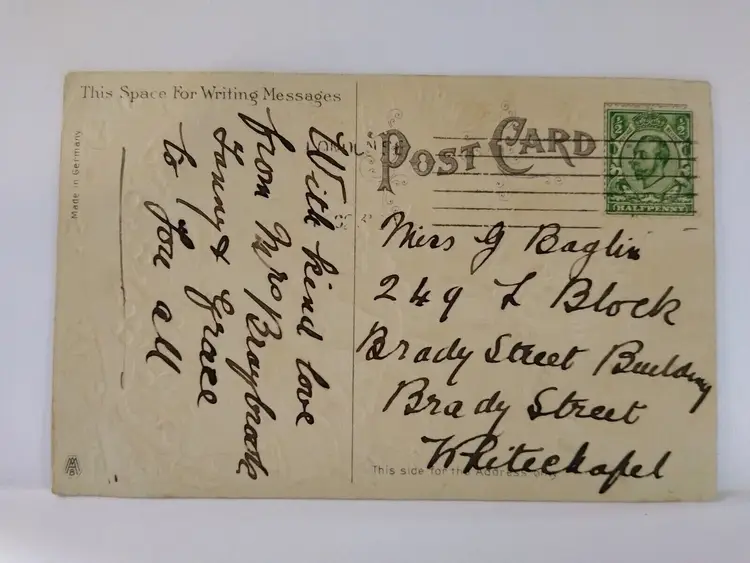 This Space For Writing Messages
Made in Germany
With kind love
from Mrs Braybrook
Fanny & Grace
to you all
POST CARD
½ ½
HALFPENNY
Miss G Baglin
249 L Block
Brady Street Building
Brady Street
Whitechapel
This side for the Address only